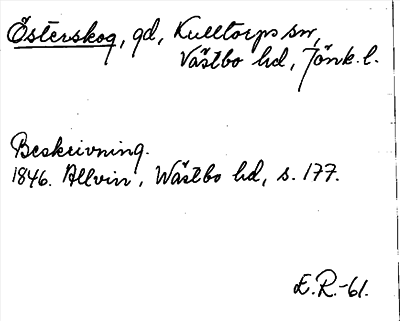 Österskog, gd, Kulltorps sn,
Västbo hd, Jönk. l.
Beskrivning.
1846. Allvin, Wästbo hd, s. 177.
E.R.-61.